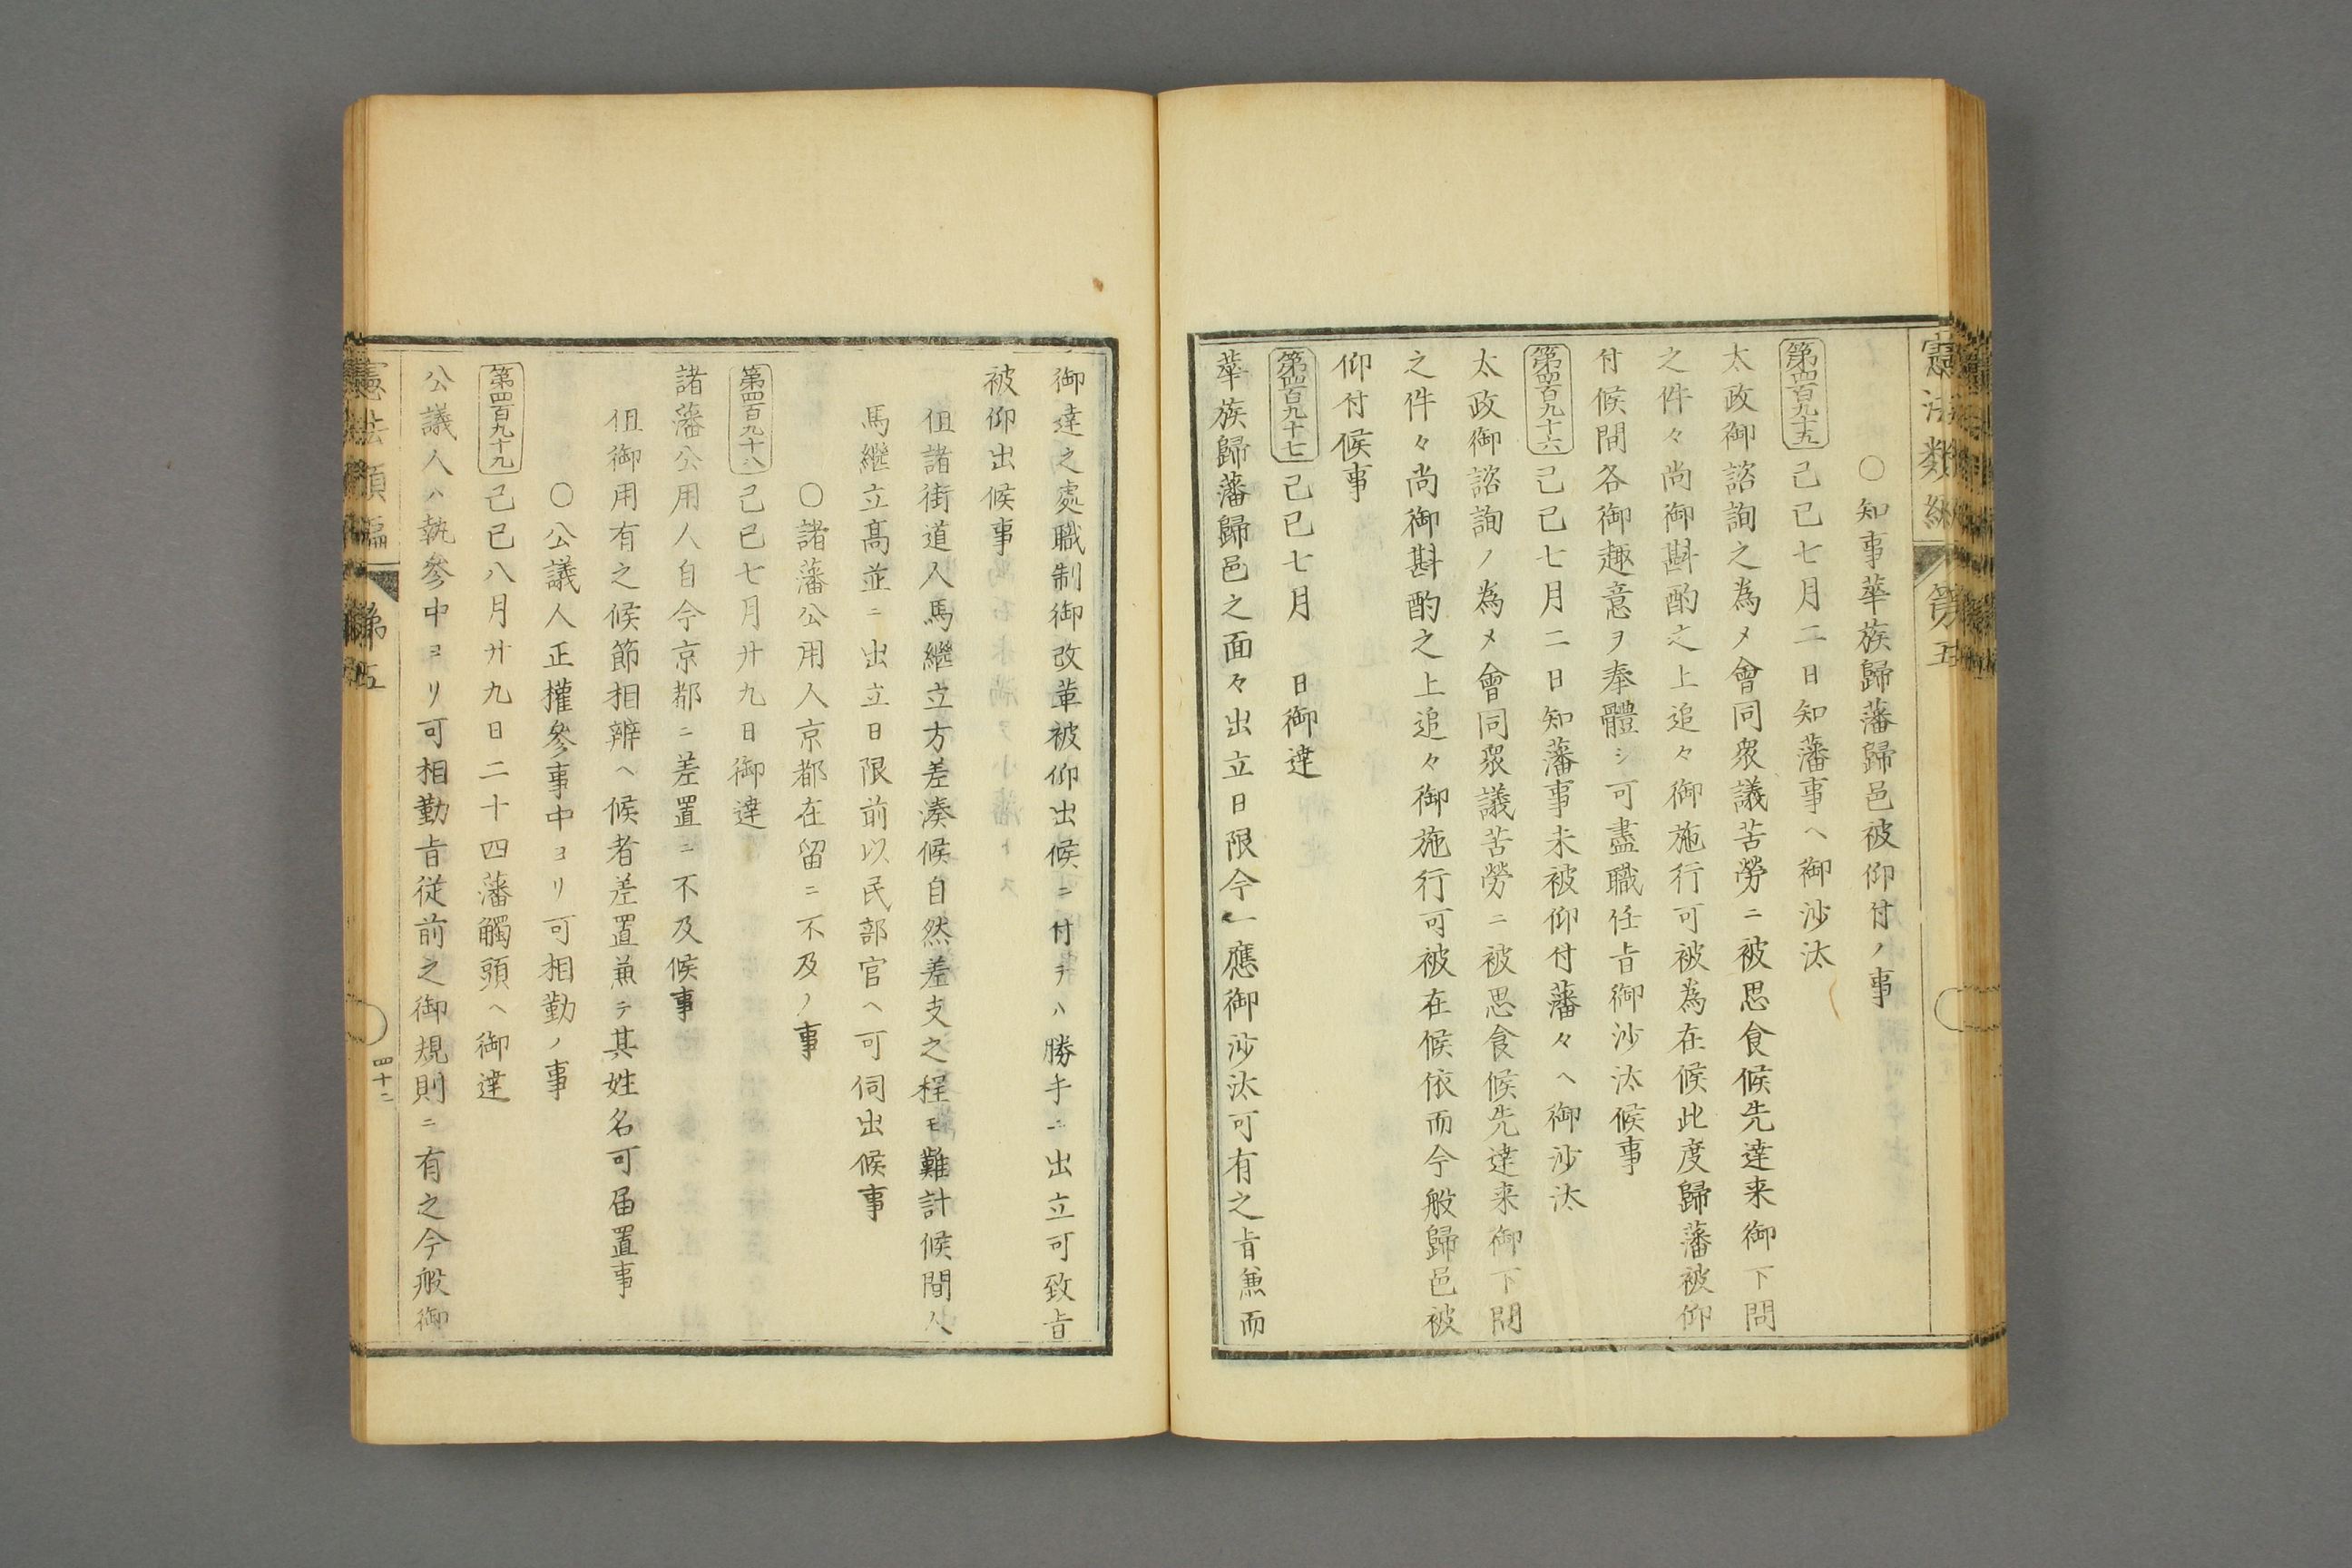 憲法類編
第五
○知事華族歸藩歸邑被仰付ノ事
第四百九十五 己巳七月二日知藩事ヘ御沙汰
太政御諮詢之為メ會同衆議苦勞ニ被思食候先達来御下問
之件々尚御斟酌之上追々御施行可被為在候此度歸藩被仰
付候間各御趣意ヲ奉體シ可盡職任旨御沙汰候事
第四百九十六 己巳七月二日知藩事未被仰付藩々ヘ御沙汰
太政御諮詢ノ為メ會同衆議苦勞ニ被思食候先達来御下問
之件々尚御斟酌之上追々御施行可被在候依而今般歸邑被
仰付候事
第四百九十七 己巳七月 日御達
華族歸藩歸邑之面々出立日限今一應御沙汰可有之旨兼而
御達之處職制御改革被仰出候ニ付テハ勝手ニ出立可致旨
被仰出候事
但諸街道人馬繼立方差湊候自然差支之程モ難計候間人
馬繼立高並ニ出立日限前以民部官ヘ可伺出候事
○諸藩公用人京都在留ニ不及ノ事
第四百九十八 己巳七月廿九日御達
諸藩公用人自今京都ニ差置ニ不及候事
但御用有之候節相辨ヘ候者差置兼テ其姓名可届置事
○公議人正權參事中ヨリ可相勤ノ事
第四百九十九 己巳八月廿九日二十四藩觸頭ヘ御達
公議人ハ執參中ヨリ可相勤旨従前之御規則ニ有之今般御
憲法類編
第五
四十二